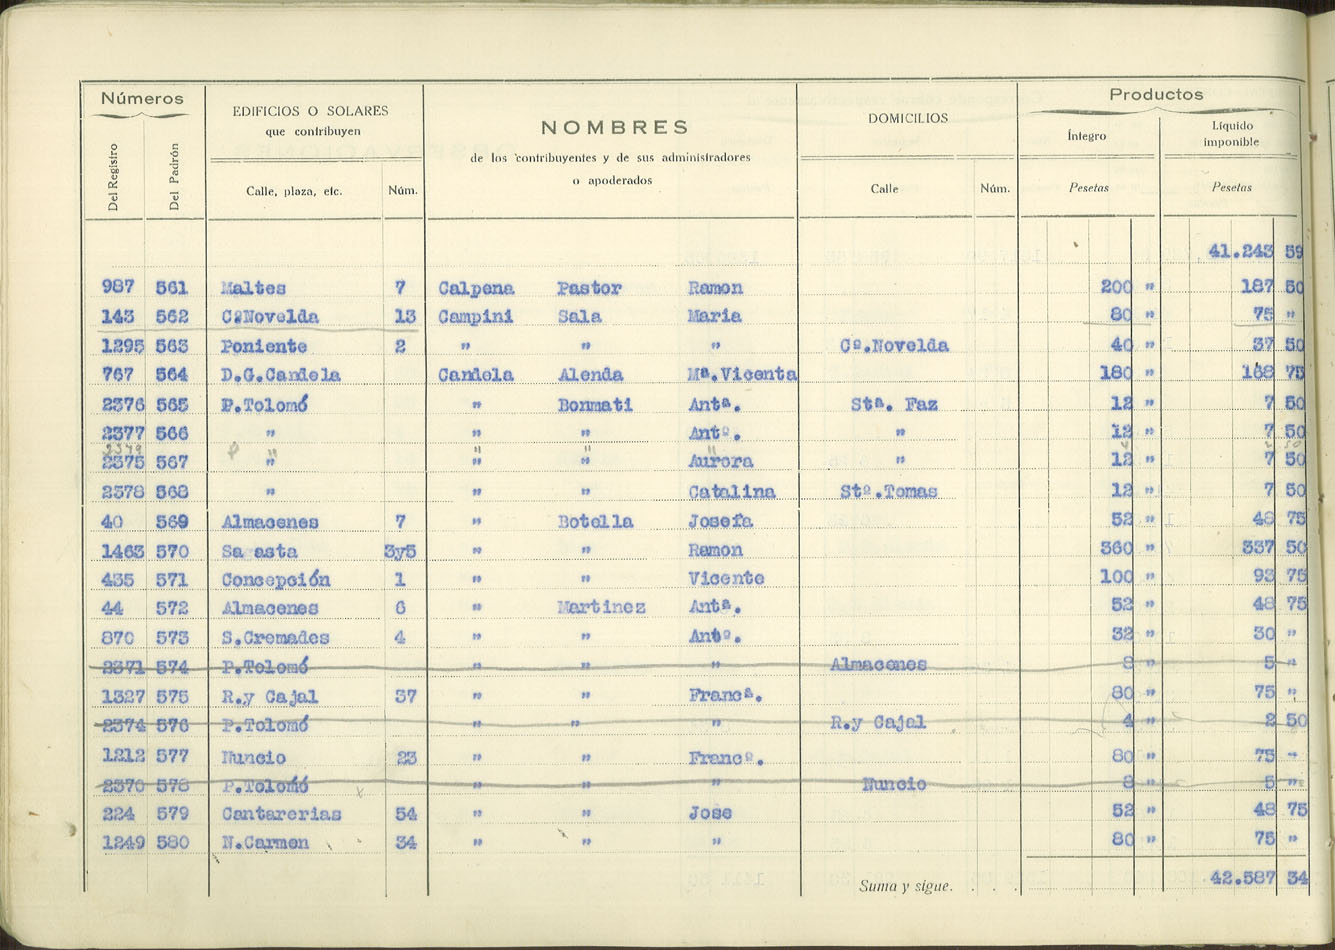 Números
EDIFICIOS O SOLARES
que contribuyen
NOMBRES
de los contribuyentes y de sus administradores
o apoderados
DOMICILIOS
Productos
Íntegro
Líquido
imponible
Del Registro
Del Padrón
Calle, plaza, etc.
Núm.
Calle
Núm.
Pesetas
Pesetas
41.243 59
987 561 Maltes 7 Calpena Pastor Ramon 200 " 187 50
143 562 Cº Novelda 13 Campini Sala Maria 80 " 75 "
1295 563 Poniente 2 " " " Cº.Novelda 40 " 37 50
767 564 D.G.Candela Candela Alenda Mª.Vicenta 180 " 168 75
2376 565 P.Tolomó " Bonmati Antª. Stª. Faz 12 " 7 50
2377 566 " " " Antº. " 12 " 7 50
2379 " " " "
2375 567 " " " Aurora " 12 " 7 50
2378 568 " " " Catalina Stº.Tomas 12 " 7 50
40 569 Almacenes 7 " Botella Josefa 52 " 48 75
1463 570 Sa asta 3y5 " " Ramon 360 " 337 50
435 571 Concepción 1 " " Vicente 100 " 93 75
44 572 Almacenes 6 " Martinez Antª. 52 " 48 75
870 573 S.Cremades 4 " " Antº. 32 " 30 "
2371 574 P.Tolomó " " " Almacenes 8 " 5 "
1327 575 R.y Cajal 37 " " Francª. 80 " 75 "
2374 576 P.Tolomó " " " R.y Cajal 4 " 2 50
1212 577 Nuncio 23 " " Francº. 80 " 75 "
2370 578 P.Tolomó " " " Nuncio 8 " 5 "
224 579 Cantarerias 54 " " Jose 52 " 48 75
1249 580 N.Carmen 34 " " " 80 " 75 "
Suma y sigue. . . . 42.587 34